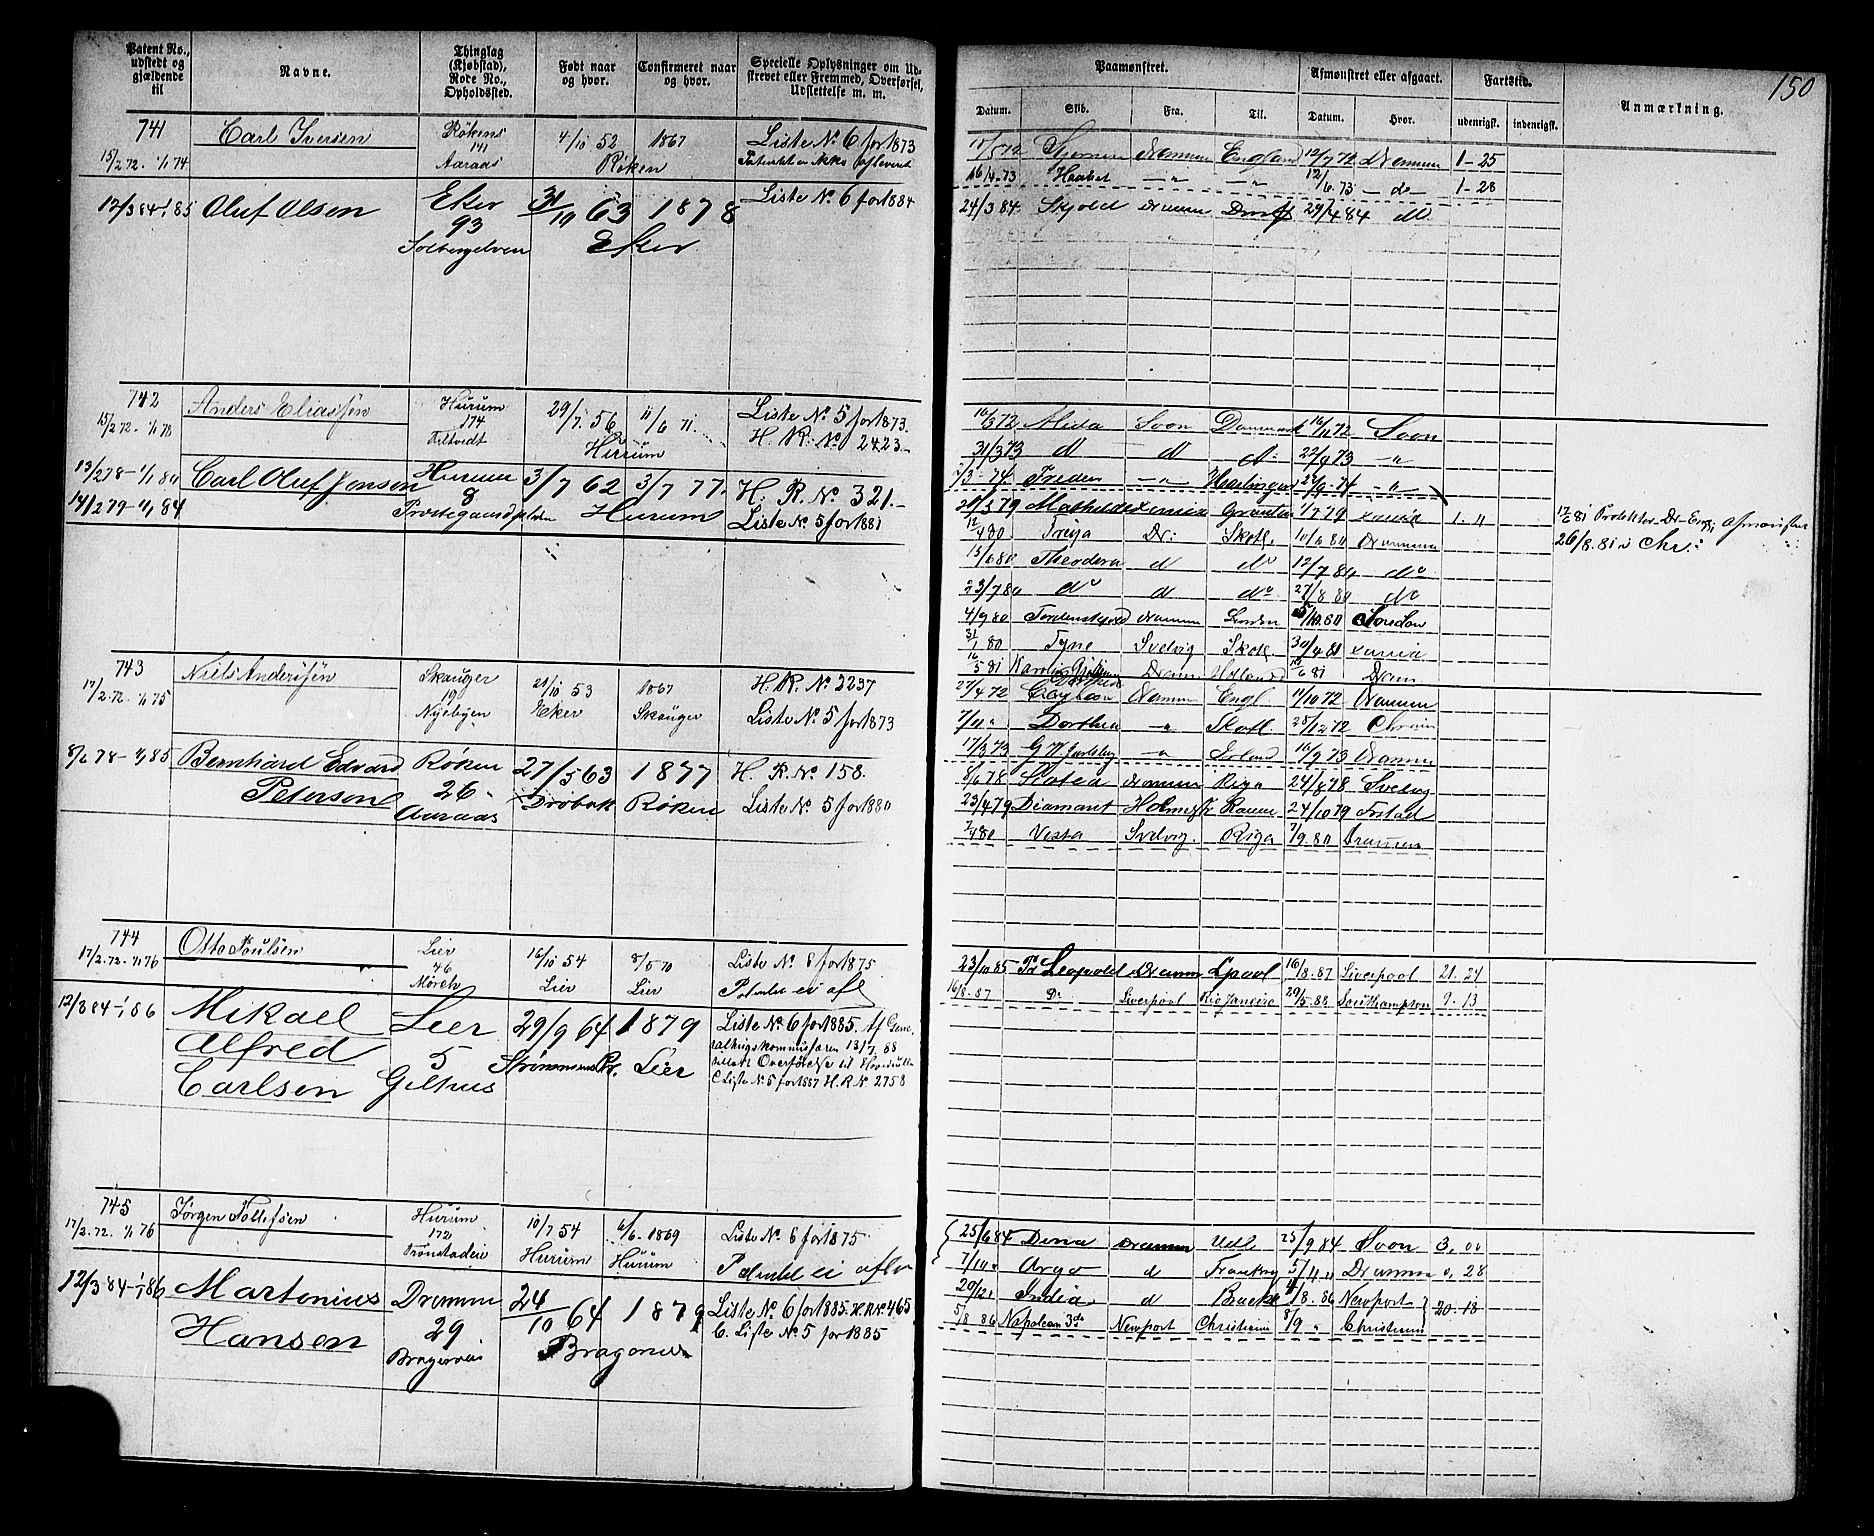 150
Patent No., udstedt og gjældende til
Navne.
Thinglag (Kjøbstad), Rode No., Opholdssted.
Født naar og hvor.
Confirmeret naar og hvor.
Specielle Oplysninger om Udstrevet eller Fremmed, Overførsel, Udslettelse m. m.
Paamønstret.
Afmønstret eller afgaaet.
Fartstid.
Anmærkning.
Datum. Skib. Fra. Til. Datum. Hvor. udenrigsk. indenrigsk.
741 Carl Iversen Røkens 4/10 52 1867 Liste No 6 for 1873
15/2 72. - 1/1 74 141 Aaraas Røken
17/5 72 England 12/7 72 Drammen 1-25
16/4-73 Haabet -"- -"- 12/6.73 -do- 1-28
12/3 84 1/1 85 Oluf Olsen Eker 31/10 63 1878 Liste No 6 for 1884
93 Solbergelven Eker
24/3 84 Skjold Dramm 29/4 84 do
742 Anders Eliassen Hurum 29/7. 56 11/6 71. Liste No 5 for 1873.
15/2 72. - 1/1 78 174 Filtvedt Hurum H. R. No 2423.-
Alida Soon Danmark Soon
31/3 73 d d d: 22/9 73 -"-
13/2 78 - 1/1 80 Carl Oluf Jonson Hurum 3/7 62 3/7 77. H. R. No 321.-
14/2 79 - 1/1 84 8 Hurum Liste No 5 for 1881
7/3-74 -"- Harlingen -74 -"-
Mathilde Granton 1/7 79 1. 11
12/4 80 Freya Dr: Skotl. 10/6 80 Dramm
15/6 80 Theodora d do 12/7 84 do
23/7 80 do d do 27/8 80 do
4/9 80 Tordenskjold Dramm London 5/10.80 London
31/1 80 Tyne Svelvig Skotl. 30/4 81
16/5 81 Dramm Holland /6 81 Dram
17/6 81 Protektor Dr-Eng; afmønstret
26/8. 81 i Chr.:
743 Niels Anderssen Skauger 21/10 53 1867 H. R. No 2237
17/2.72. 1/1 75 19 Nyebyen Eker Skauger Liste No 5 for 1873
27/4 72 Dramm Engl 11/10 72 Dramm
7/11 " Dorthea -"- Skotl. 25/12 72 Chrania
17/3 73 G W. Jarlsberg -"- Irland 16/9 73 Dramm
8/6 78 - 1/1 85 Bernhard Edvard Petersen Røken 27/5 63 1877 H. R. No 158.
26- Aaraas Drøbak Røken Liste No 5 for 1880
8/6 78 Dramm Riga 24/8 78 Svelvig
23/4 79 Diamant Holmestr 24/10 79
7/4 80 Vesta Svelvig. Riga 7/9.80 Dramm
744 Otto Poulsen Lier 16/10 54 8/5 70 Liste No 8 for 1875
17/2.72. - 1/1 76 46 Mørch Lier Lier Patentet ei afl
12/3 84 - 1/1 86 Mikael Alfred Carlsen Lier 29/9 64 1879 Liste No 6 for 1885. Af Gene-
5 Gilhus Strømmens Pr. Lier ralkrigskommissæren 13/7 88
tilladt Overførelse til Hovedrullen
C Liste No 5 for 1887 H. R No 2758
23/10 85 Pr Leopold Dramm Lpool 16/8.87 Liverpool 21-24
16/8-87 Do Liverpool Rio Janeiro 29/5-88 Southampton 9-13
745 Jørgen Tollefsen Hurum 10/7 54 6/6. 1869 Liste No 8 for 1875.
17/2.72. 1/1 76 172 Tronstadeie Hurum Hurum Patentet ei aflev
12/3 84 - 1/1 86 Martonius Hansen Drammen 24/10 64 1879 Liste No 6 for 1885. H. R No 465
29 Bragernæs Bragernes C. Liste No 5 for 1885
25/6 84 Dina Dramm Udl. 25/9 84 Soon 3,00
7/10 " Argo d Frankrig 5/11 " Dramm 0, 28
29/12 " India d /8-86 Newport 20-18
5/8 86 Napoleon 3de Newport Christiania 8/9 " Christiania